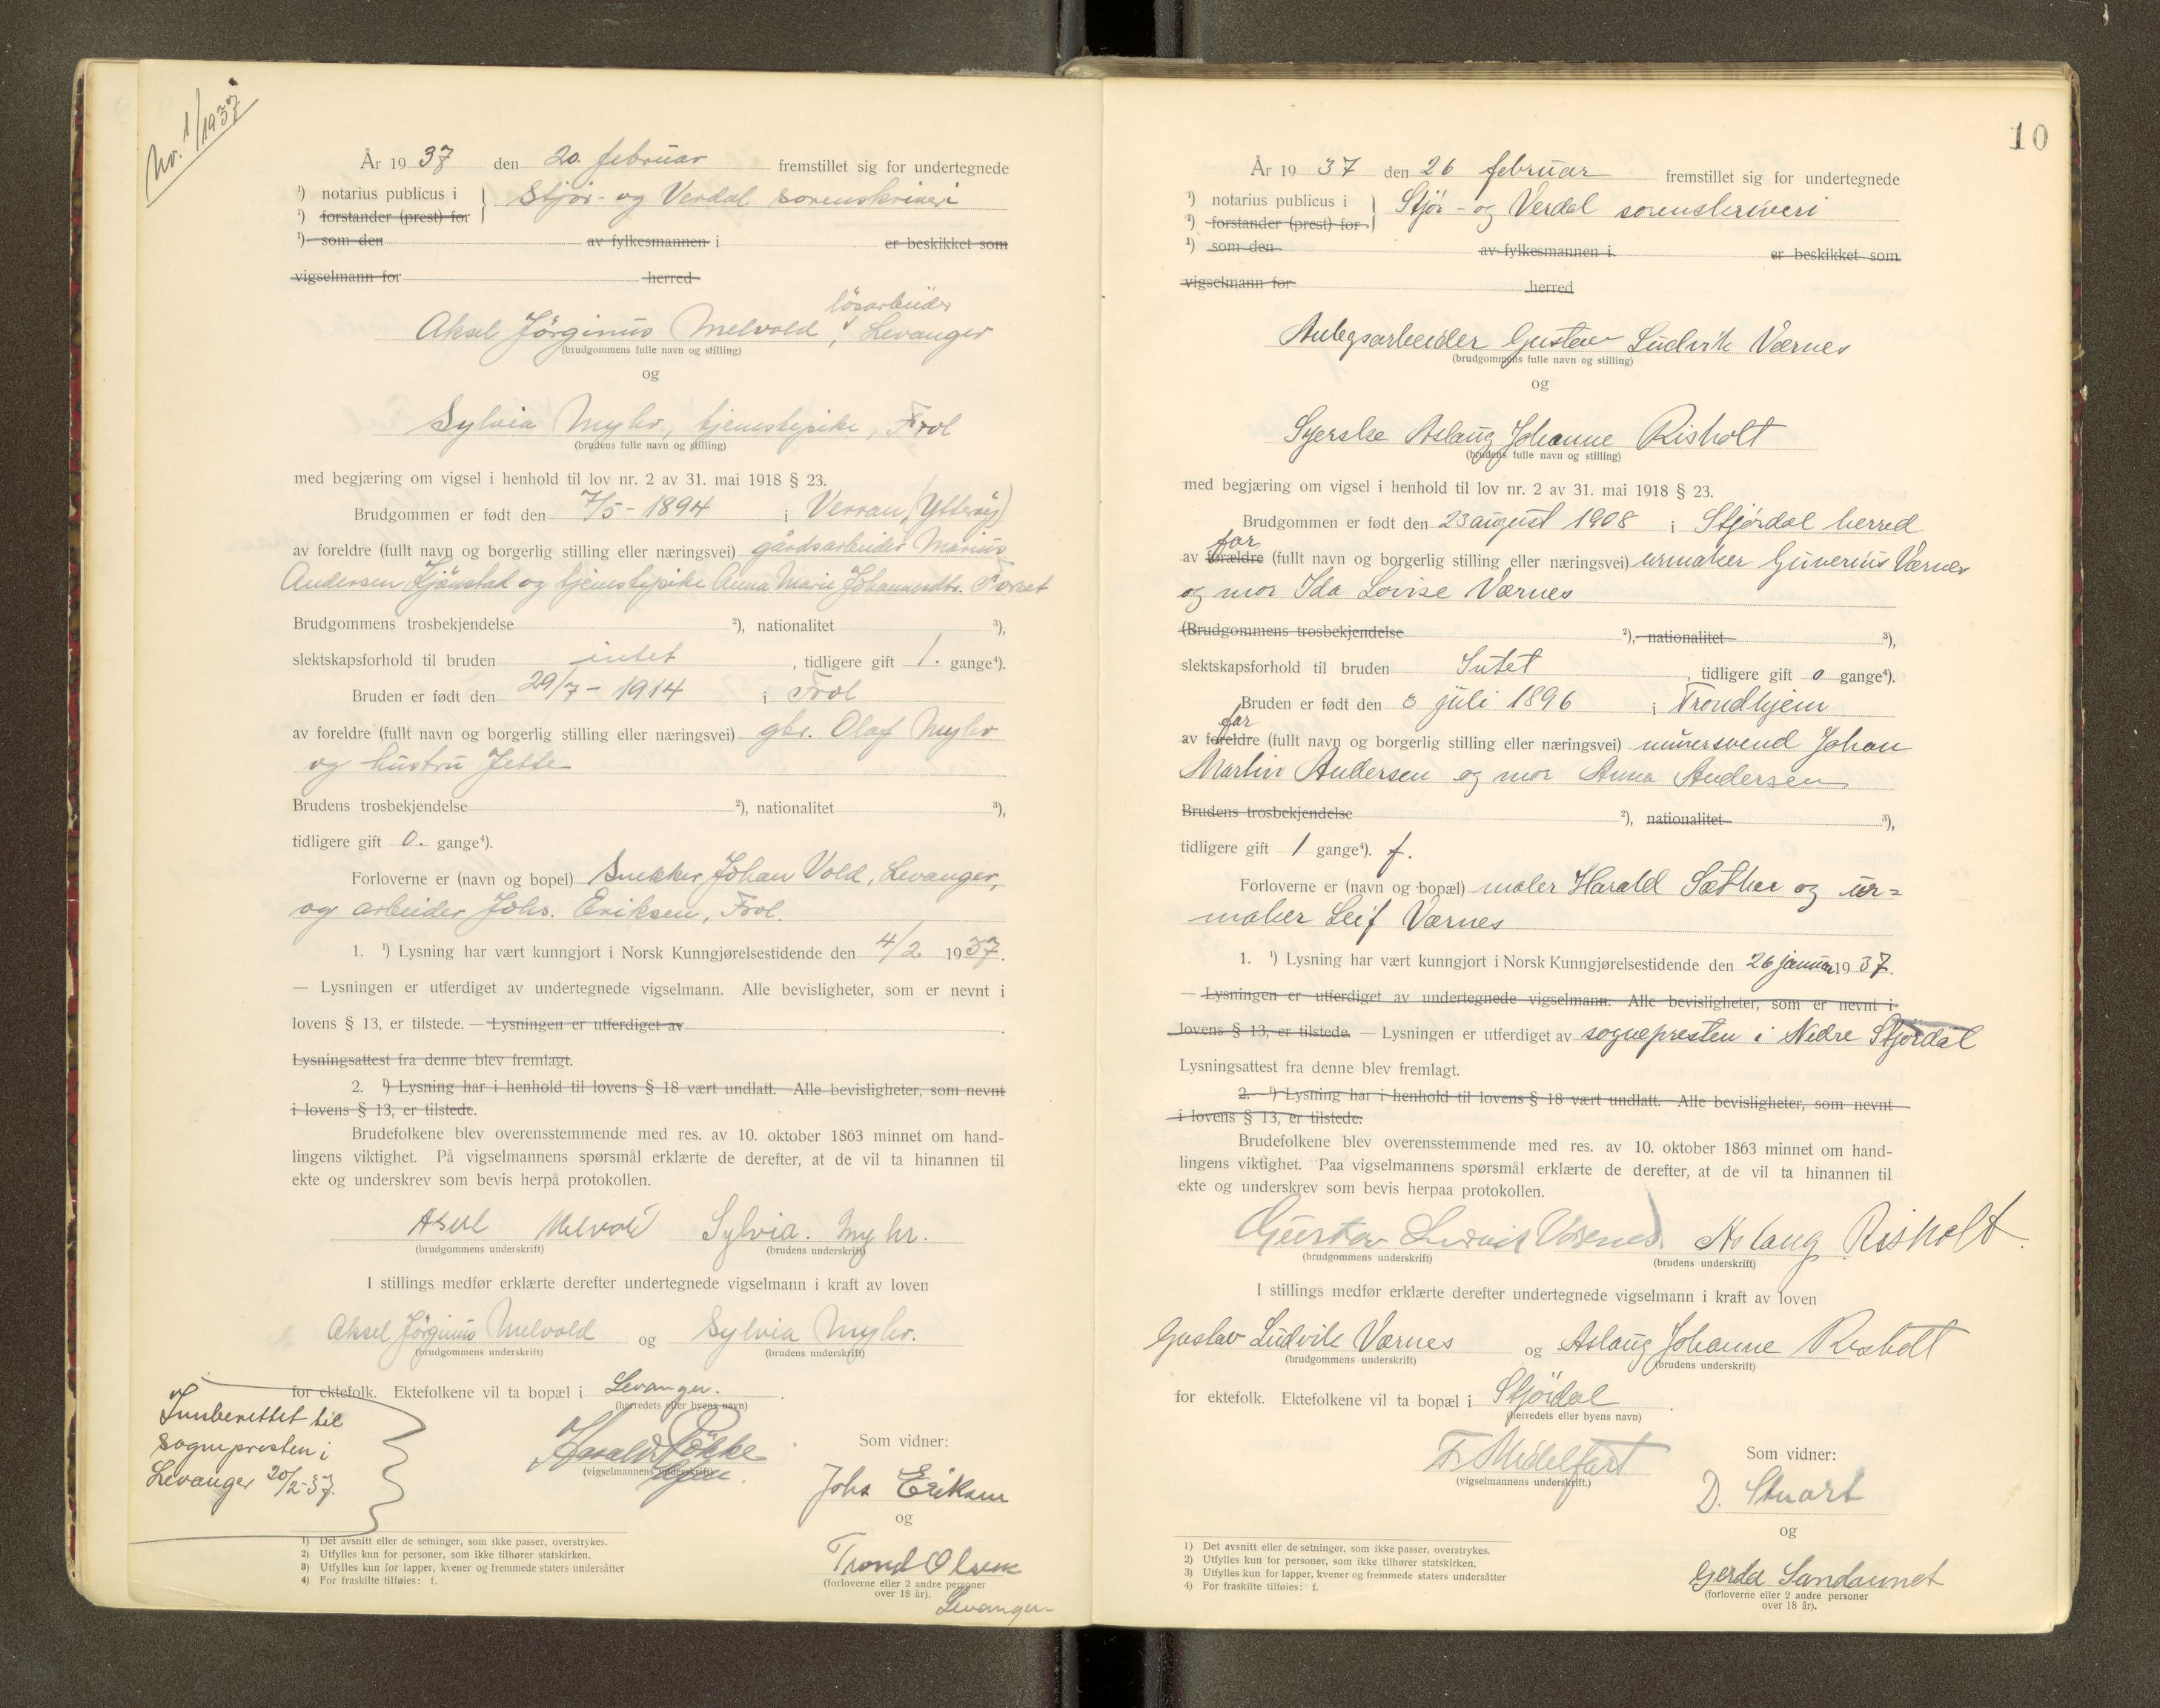 No. 1/1937
År 1937 den 20. februar fremstillet sig for undertegnede
¹) notarius publicus i } Stjør- og Verdal sorenskriveri
¹) forstander (prest) for
¹) som den av fylkesmannen i er beskikket som
vigselmann for herred
løsarbeider
Aksel Jörginus Melvold, Levanger
(brudgommens fulle navn og stilling)
og
Sylvia Myhr, tjenestepike, Frol
(brudens fulle navn og stilling)
med begjæring om vigsel i henhold til lov nr. 2 av 31. mai 1918 § 23.
Brudgommen er født den 7/5-1894 i Verran, (Ytterøy)
av foreldre (fullt navn og borgerlig stilling eller næringsvei) gårdsarbeider Marius
Andersen Kjönstad og tjenestepike Anna Marie Johannesdtr. Forset
Brudgommens trosbekjendelse ²), nationalitet ³),
slektskapsforhold til bruden intet, tidligere gift 1. gange⁴).
Bruden er født den 29/7-1914 i Frol
av foreldre (fullt navn og borgerlig stilling eller næringsvei) gbr. Olaf Myhr
og hustru Jette
Brudens trosbekjendelse ²), nationalitet ³),
tidligere gift 0. gange⁴).
Forloverne er (navn og bopel) Snekker Johan Vold, Levanger,
og arbeider Johs. Eriksen, Frol.
1. ¹) Lysning har vært kunngjort i Norsk Kunngjørelsestidende den 4/2 1937.
— Lysningen er utferdiget av undertegnede vigselmann. Alle bevisligheter, som er nevnt i
lovens § 13, er tilstede. — Lysningen er utferdiget av .
Lysningsattest fra denne blev fremlagt.
2. ¹) Lysning har i henhold til lovens § 18 vært undlatt. Alle bevisligheter, som nevnt
i lovens § 13, er tilstede.
Brudefolkene blev overensstemmende med res. av 10. oktober 1863 minnet om hand-
lingens viktighet. På vigselmannens spørsmål erklærte de derefter, at de vil ta hinannen til
ekte og underskrev som bevis herpå protokollen.
Melvold Sylvia. Myhr.
(brudgommens underskrift) (brudens underskrift)
I stillings medfør erklærte derefter undertegnede vigselmann i kraft av loven
Aksel Jörginus Melvold og Sylvia Myhr.
(brudgommens underskrift) (brudens underskrift)
for ektefolk. Ektefolkene vil ta bopæl i Levanger.
(herredets eller byens navn)
Innberettet til
sognepresten i
Levanger 20/2-37.
Harald
(vigselmannens underskrift)
Som vidner:
Johs Eriksen
og
Trond Olsen
(forloverne eller 2 andre personer
over 18 år).
Levanger
1) Det avsnitt eller de setninger, som ikke passer, overstrykes.
2) Utfylles kun for personer, som ikke tilhører statskirken.
3) Utfylles kun for lapper, kvener og fremmede staters undersåtter
4) For fraskilte tilføies: f.
10
År 1937 den 26 februar fremstillet sig for undertegnede
¹) notarius publicus i } Stjör- og Verdal sorenskriveri
¹) forstander (prest) for
¹) som den av fylkesmannen i er beskikket som
vigselmann for herred
Anlegsarbeider Gustav Ludvik Værnes
(brudgommens fulle navn og stilling)
og
Syerske Aslaug Johanne Risholt
(brudens fulle navn og stilling)
med begjæring om vigsel i henhold til lov nr. 2 av 31. mai 1918 § 23.
Brudgommen er født den 23 august 1908 i Stjördal herred
far
av forældre (fullt navn og borgerlig stilling eller næringsvei) urmaker Guverius Værnes
og mor Ida Lovise Værnes
(Brudgommens trosbekjendelse ²), nationalitet ³),
slektskapsforhold til bruden Intet, tidligere gift 0 gange⁴).
Bruden er født den 8 juli 1896 i Trondhjem
far
av foreldre (fullt navn og borgerlig stilling eller næringsvei) murersvend Johan
Martin Andersen og mor Anna Andersen
Brudens trosbekjendelse ²), nationalitet ³),
tidligere gift 1 gange⁴). f.
Forloverne er (navn og bopæl) maler Harald Sæther og ur=
maker Leif Værnes
1. ¹) Lysning har vært kunngjort i Norsk Kunngjørelsestidende den 26 januar 1937.
— Lysningen er utferdiget av undertegnede vigselmann. Alle bevisligheter, som er nevnt i
lovens § 13, er tilstede. — Lysningen er utferdiget av sognepresten i Nedre Stjördal
Lysningsattest fra denne blev fremlagt.
2. ¹) Lysning har i henhold til lovens § 18 vært undlatt. Alle bevisligheter, som nevnt
i lovens § 13, er tilstede.
Brudefolkene blev overensstemmende med res. av 10. oktober 1863 minnet om hand-
lingens viktighet. Paa vigselmannens spørsmål erklærte de derefter, at de vil ta hinannen til
ekte og underskrev som bevis herpaa protokollen.
Gustav Ludvik Værnes. Aslaug Risholt.
(brudgommens underskrift) (brudens underskrift)
I stillings medfør erklærte derefter undertegnede vigselmann i kraft av loven
Gustav Ludvik Værnes og Aslaug Johanne Risholt
(brudgommens underskrift) (brudens underskrift)
for ektefolk. Ektefolkene vil ta bopæl i Stjördal.
(herredets eller byens navn)
F. Midelfart
(vigselmannens underskrift.)
Som vidner:
D. Stuart
og
Gerda Sandaunet
(forloverne eller 2 andre personer
over 18 år).
1) Det avsnitt eller de setninger, som ikke passer, overstrykes.
2) Utfylles kun for personer, som ikke tilhører statskirken.
3) Utfylles kun for lapper, kvener og fremmede staters undersåtter
4) For fraskilte tilføies: f.